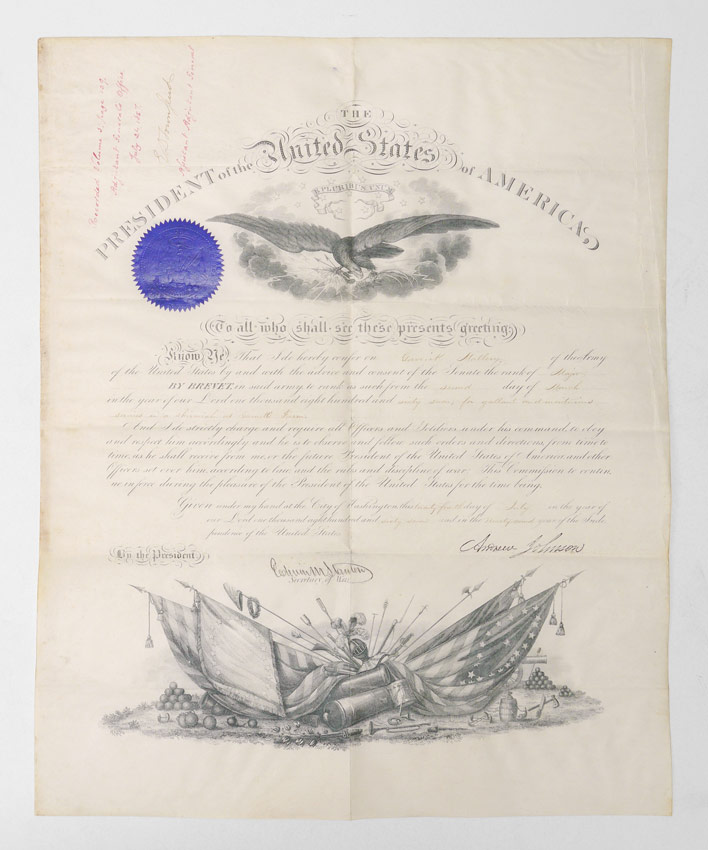 THE
United States
PRESIDENT of the of AMERICA,
E PLURIBUS UNUM
To all who shall see these presents greeting:
Know Ye, That I do hereby confer on of the Army
of the United States by and with the advice and consent of the Senate the rank of Major
BY BREVET, in said army to rank as such from the second day of March
in the year of our Lord one thousand eight hundred and sixty seven, for gallant and meritorious
And I do strictly charge and require all Officers and Soldiers under his command to obey
and respect him accordingly and he is to observe and follow such orders and directions from time to
time, as he shall receive from me, or the future President of the United States of America, and other
Officers set over him, according to law and the rules and discipline of war. This Commission to contin-
ue in force during the pleasure of the President of the United States for the time being.
Given under my hand at the City of Washington, this day of July in the year of
our Lord one thousand eight hundred and sixty seven and in the ninety second year of the Inde-
pendence of the United States.
Andrew Johnson
By the President
Edwin M Stanton
Secretary of War.
Adjutant General